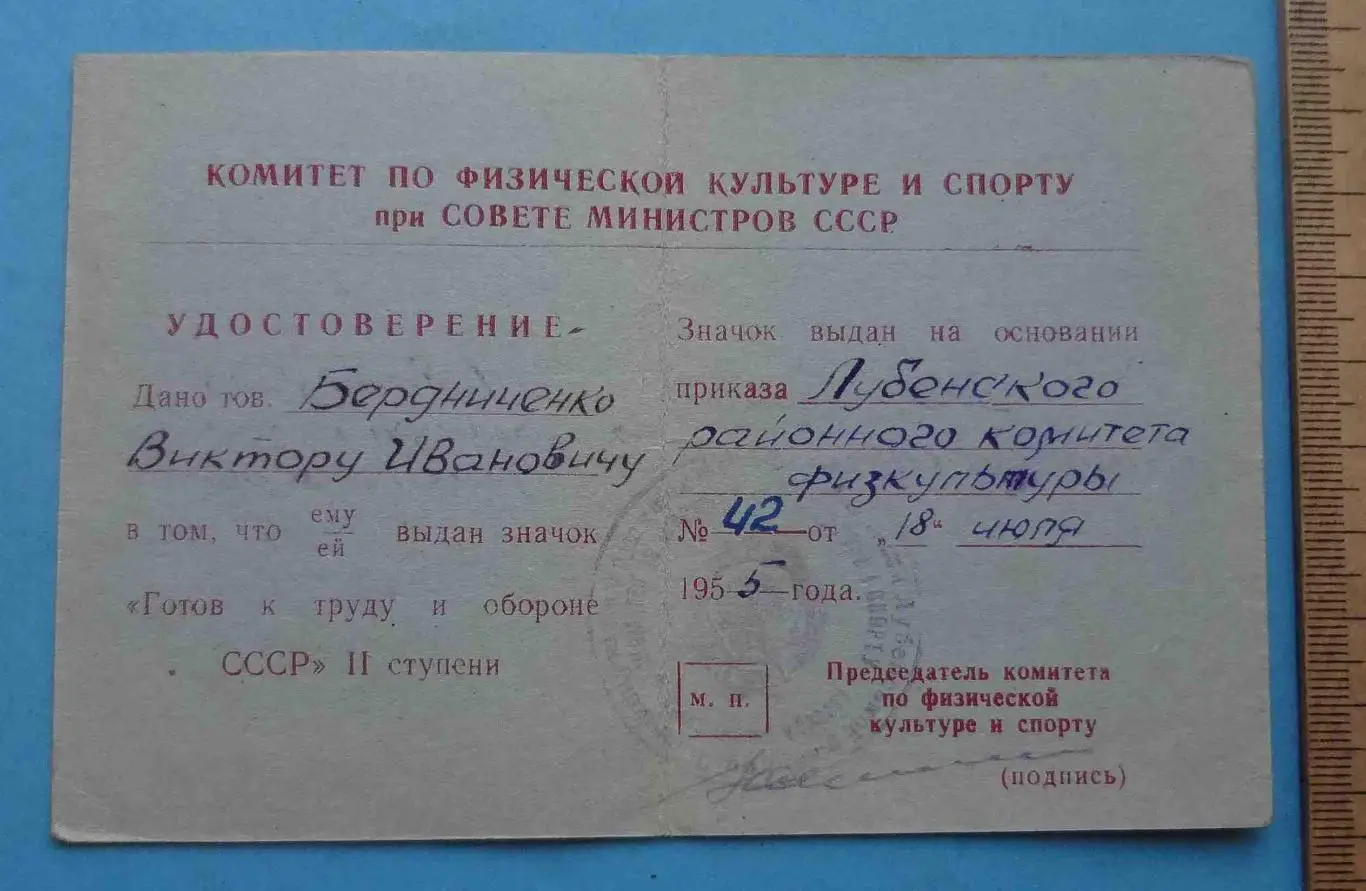 КОМИТЕТ ПО ФИЗИЧЕСКОЙ КУЛЬТУРЕ И СПОРТУ
при СОВЕТЕ МИНИСТРОВ СССР
УДОСТОВЕРЕНИЕ
Дано тов. Бердниченко
Виктору Ивановичу
в том, что ему
ей выдан значок
«Готов к труду и обороне
СССР» II ступени
Значок выдан на основании
приказа Лубенского
районного комитета
физкультуры
№ 42 от „18“ июля
1955 года.
м. п.
Председатель комитета
по физической
культуре и спорту
(подпись)